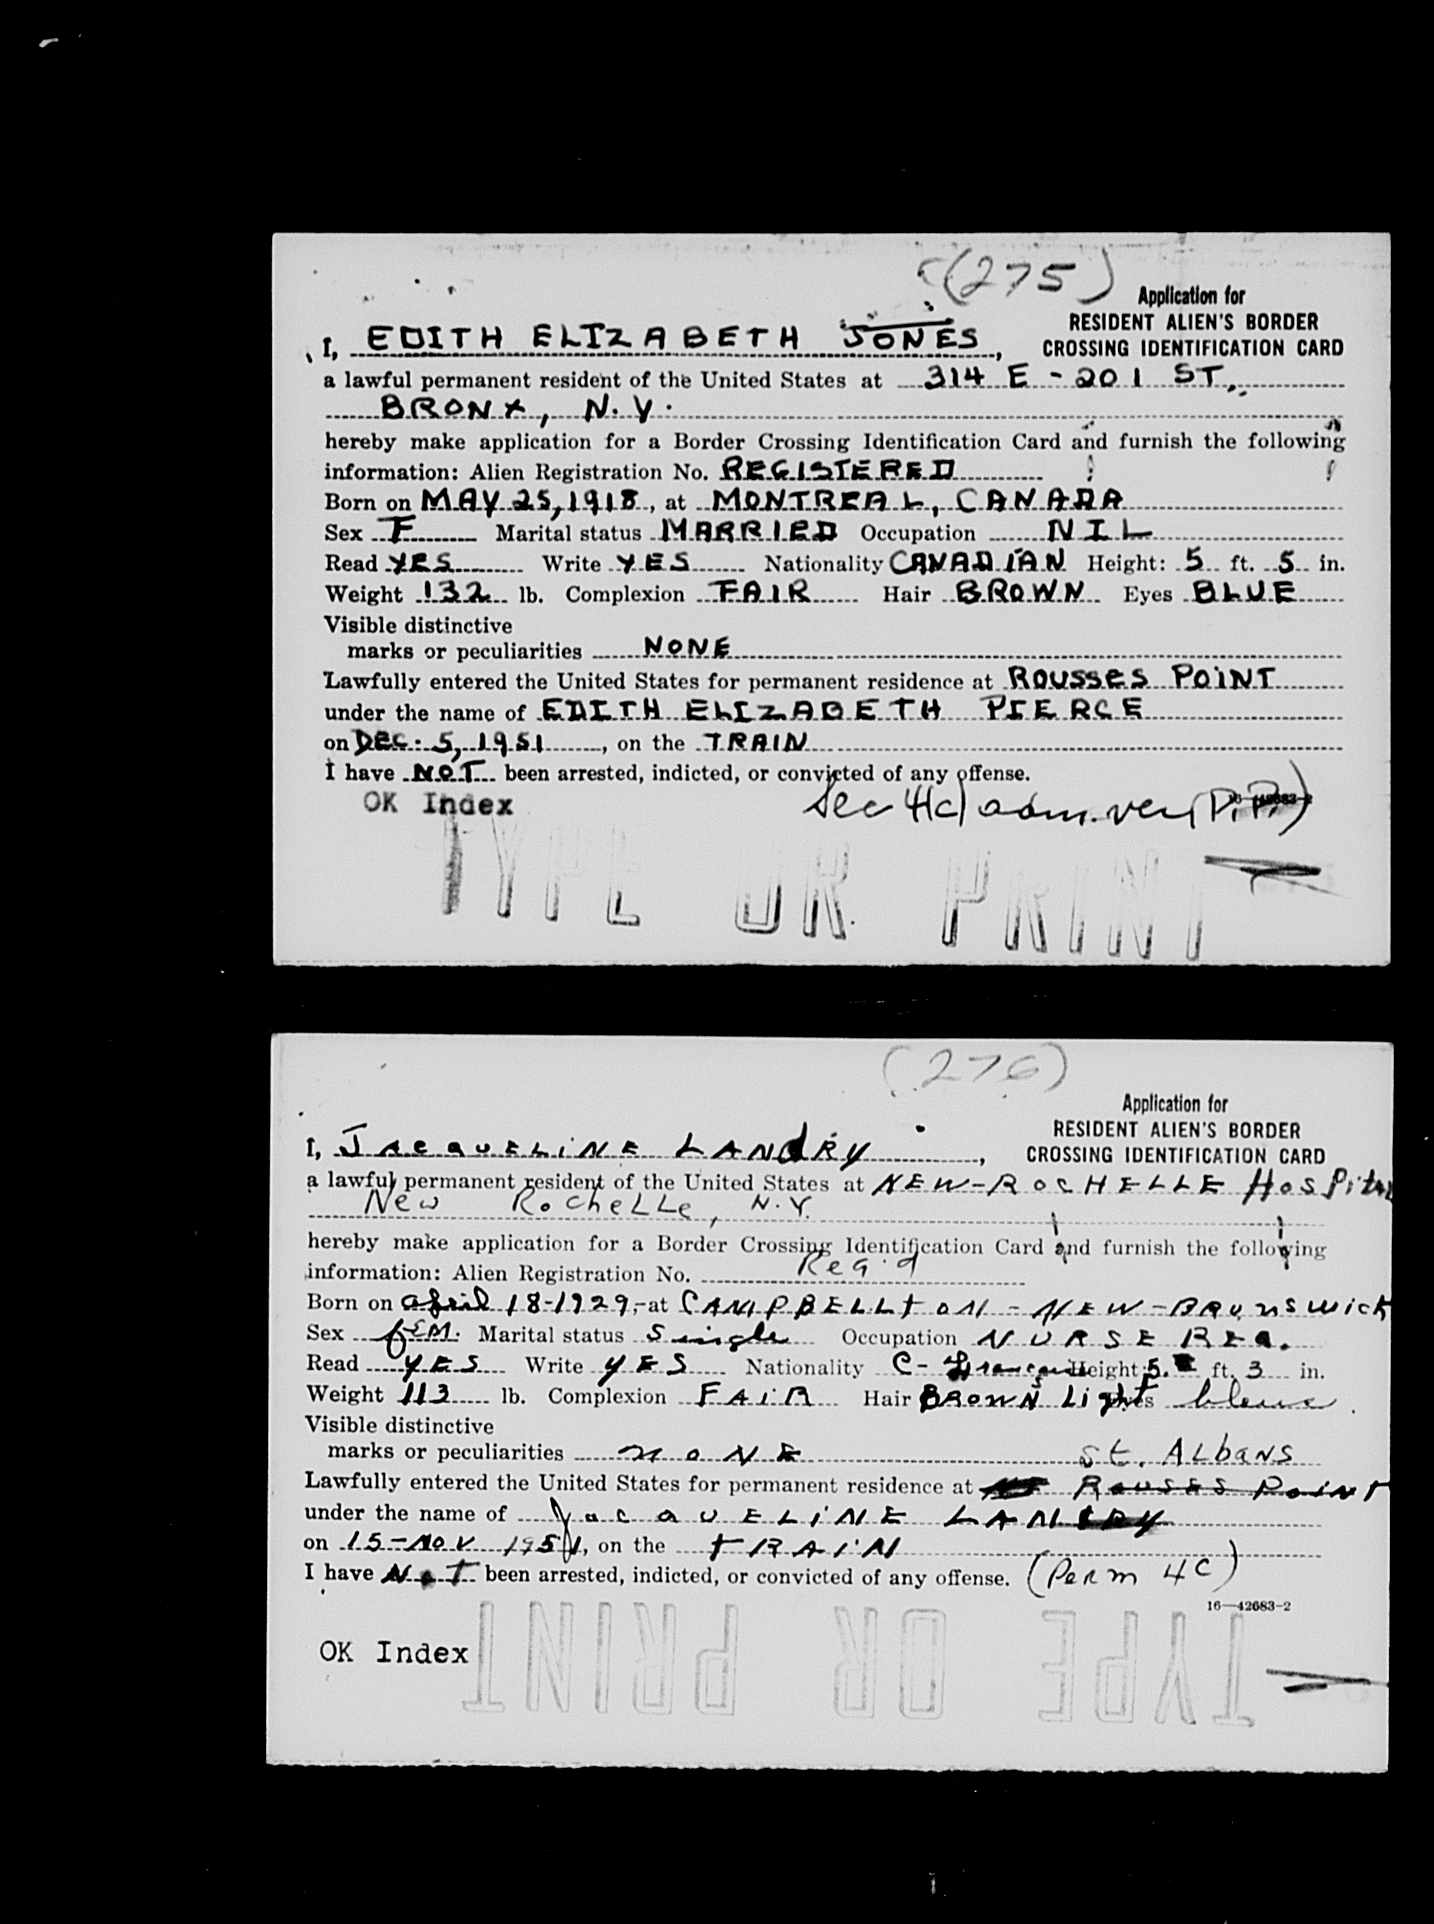 (275)
Application for
RESIDENT ALIEN'S BORDER
CROSSING IDENTIFICATION CARD
I, EDITH ELIZABETH JONES,
a lawful permanent resident of the United States at 314 E - 201 ST.,
BRONX, N.Y.
hereby make application for a Border Crossing Identification Card and furnish the following
information: Alien Registration No. REGISTERED
Born on MAY 25, 1918, at MONTREAL, CANADA
Sex F Marital status MARRIED Occupation NIL
Read YES Write YES Nationality CANADIAN Height: 5 ft. 5 in.
Weight 132 lb. Complexion FAIR Hair BROWN Eyes BLUE
Visible distinctive
marks or peculiarities NONE
Lawfully entered the United States for permanent residence at ROUSSES POINT
under the name of EDITH ELIZABETH PIERCE
on DEC. 5, 1951, on the TRAIN
I have NOT been arrested, indicted, or convicted of any offense.
OK Index Sec 4(c) adm. ver (P.P.)
TYPE OR PRINT
(276)
Application for
RESIDENT ALIEN'S BORDER
CROSSING IDENTIFICATION CARD
I, JACQUELINE LANDRY,
a lawful permanent resident of the United States at NEW-ROCHELLE Hospital
New Rochelle, N.Y.
hereby make application for a Border Crossing Identification Card and furnish the following
information: Alien Registration No. Reg'd
Born on april 18-1929, at CAMPBELLTON - NEW-BRUNSWICK
Sex FEM. Marital status Single Occupation NURSE REG.
Read YES Write YES Nationality C- Height: 5 ft. 3 in.
Weight 113 lb. Complexion FAIR Hair BROWN Light Eyes bleue
Visible distinctive
marks or peculiarities NONE St. Albans
Lawfully entered the United States for permanent residence at ROUSES POINT
under the name of Jacqueline LANDRY
on 15-NOV 1951, on the TRAIN
I have NOT been arrested, indicted, or convicted of any offense. (Perm 4C)
16—42683-2
OK Index
TYPE OR PRINT